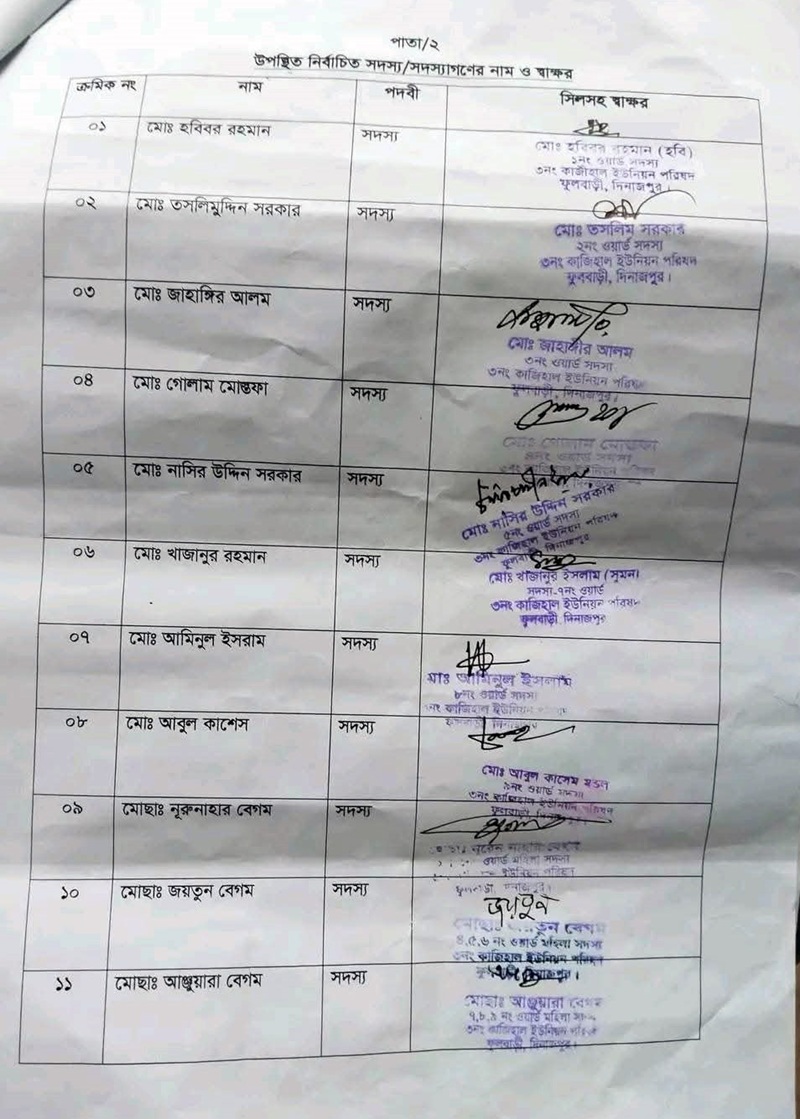 পাতা/২
উপস্থিত নির্বাচিত সদস্য/সদস্যাগণের নাম ও স্বাক্ষর
ক্রমিক নং নাম পদবী সিলসহ স্বাক্ষর
০১ মোঃ হবিবর রহমান সদস্য
মোঃ হবিবর রহমান (হবি)
১নং ওয়ার্ড সদস্য
৩নং কাজিহাল ইউনিয়ন পরিষদ
ফুলবাড়ী, দিনাজপুর।
০২ মোঃ তসলিমুদ্দিন সরকার সদস্য
মোঃ তসলিম সরকার
২নং ওয়ার্ড সদস্য
৩নং কাজিহাল ইউনিয়ন পরিষদ
ফুলবাড়ী, দিনাজপুর।
০৩ মোঃ জাহাঙ্গির আলম সদস্য
মোঃ জাহাঙ্গীর আলম
৩নং ওয়ার্ড সদস্য
৩নং কাজিহাল ইউনিয়ন পরিষদ
ফুলবাড়ী, দিনাজপুর।
০৪ মোঃ গোলাম মোস্তফা সদস্য
মোঃ গোলাম মোস্তফা
৪নং ওয়ার্ড সদস্য
৩নং কাজিহাল ইউনিয়ন পরিষদ
০৫ মোঃ নাসির উদ্দিন সরকার সদস্য
মোঃ নাসির উদ্দিন সরকার
৫নং ওয়ার্ড সদস্য
৩নং কাজিহাল ইউনিয়ন পরিষদ
ফুলবাড়ী, দিনাজপুর
০৬ মোঃ খাজানুর রহমান সদস্য
মোঃ খাজানুর ইসলাম (সুমন)
সদস্য-৭নং ওয়ার্ড
৩নং কাজিহাল ইউনিয়ন পরিষদ
ফুলবাড়ী, দিনাজপুর
০৭ মোঃ আমিনুল ইসরাম সদস্য
মোঃ আমিনুল ইসলাম
৮নং ওয়ার্ড সদস্য
৩নং কাজিহাল ইউনিয়ন পরিষদ
০৮ মোঃ আবুল কাশেস সদস্য
মোঃ আবুল কাসেম মন্ডল
৯নং ওয়ার্ড সদস্য
৩নং কাজিহাল ইউনিয়ন পরিষদ
ফুলবাড়ী, দিনাজপুর
০৯ মোছাঃ নূরুনাহার বেগম সদস্য
ওয়ার্ড মহিলা সদস্য
ইউনিয়ন পরিষদ
১০ মোছাঃ জয়তুন বেগম সদস্য
জয়তুন
মোছাঃ জয়তুন বেগম
৪,৫,৬ নং ওয়ার্ড মহিলা সদস্য
৩নং কাজিহাল ইউনিয়ন পরিষদ
ফুলবাড়ী, দিনাজপুর।
১১ মোছাঃ আঞ্জুয়ারা বেগম সদস্য
মোছাঃ আঞ্জুয়ারা বেগম
৭,৮,৯ নং ওয়ার্ড মহিলা সদস্য
৩নং কাজিহাল ইউনিয়ন পরিষদ
ফুলবাড়ী, দিনাজপুর।